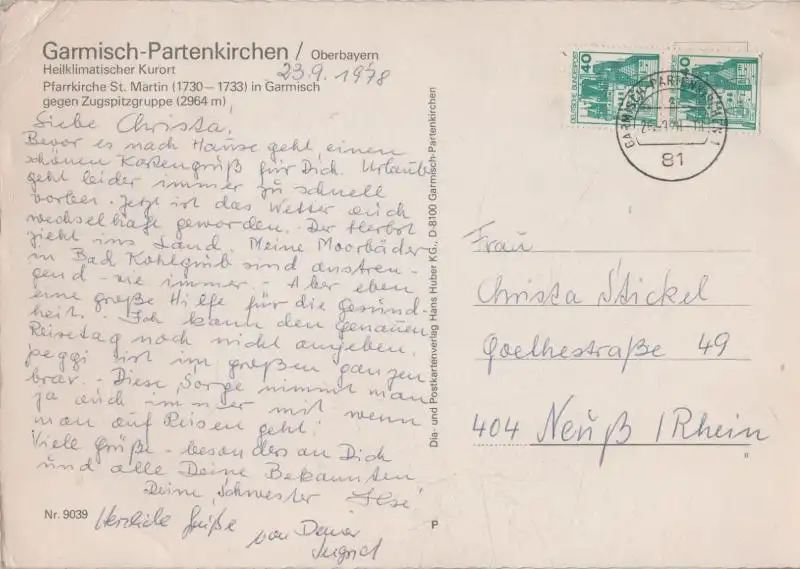 Garmisch-Partenkirchen / Oberbayern
Heilklimatischer Kurort
23.9.1978
Pfarrkirche St. Martin (1730–1733) in Garmisch
gegen Zugspitzgruppe (2964 m)
Liebe Christa!
Bevor es nach Hause geht, einen
schönen Kartengruß für Dich. Urlaub
geht leider immer zu schnell
vorbei. Jetzt ist das Wetter auch
wechselhaft geworden. Der Herbst
zieht ins Land. Meine Moorbäder
in Bad Kohlgrub sind anstren-
gend - wie immer. - Aber eben
eine große Hilfe für die Gesund-
heit. - Ich kann den genauen
Reisetag noch nicht angeben.
Peggi ist im großen ganzen
brav. - Diese Sorge nimmt man
ja auch immer mit wenn
man auf Reisen geht!
Viele Grüße - besonders an Dich
und alle Deine Bekannten
Deine Schwester Ilse
Herzliche Grüße von Deiner
Ingrid
Nr. 9039
Dia- und Postkartenverlag Hans Huber KG., D-8100 Garmisch-Partenkirchen
P
DEUTSCHE BUNDESPOST
40
GARMISCH-PARTENKIRCHEN 1
81
Frau
Christa Stickel
Goethestraße 49
404 Neuß / Rhein